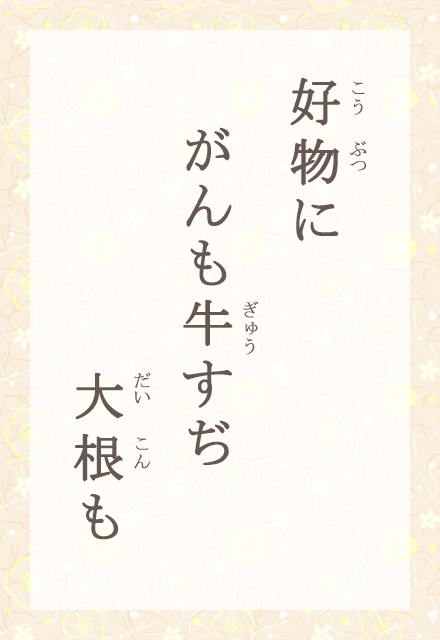 好物に
こう ぶつ
がんも牛すぢ
ぎゅう
大根も
だい こん